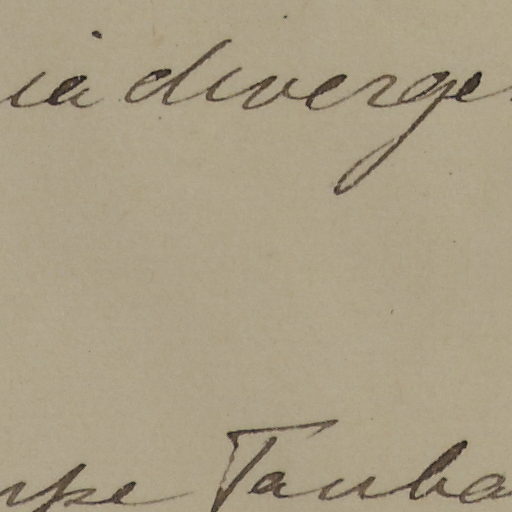 ia diverge
Tauba